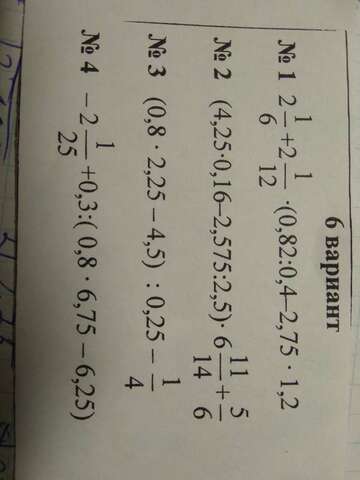 6 вариант
№ 1 2 1/6 + 2 1/12 · (0,82:0,4–2,75 · 1,2
№ 2 (4,25·0,16–2,575:2,5)· 6 11/14 + 5/6
№ 3 (0,8 · 2,25 – 4,5) : 0,25 – 1/4
№ 4 – 2 1/25 +0,3:( 0,8 · 6,75 – 6,25)